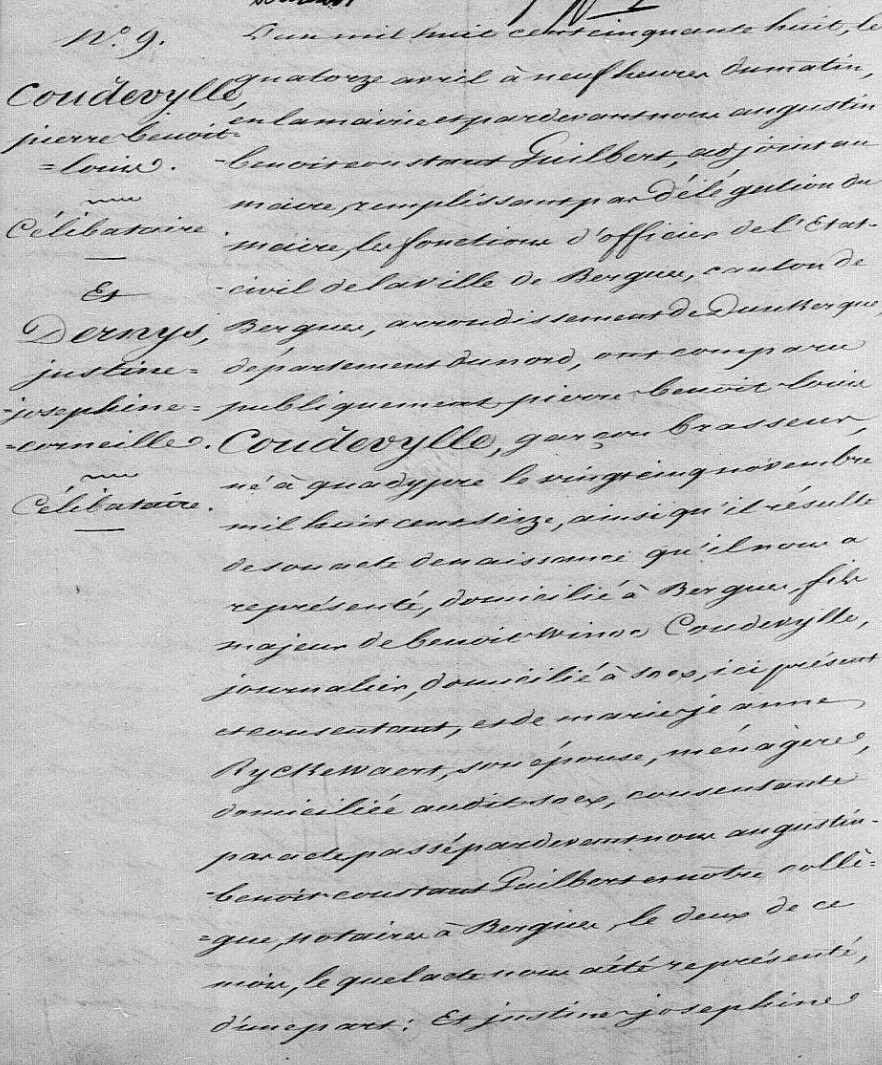 N.o 9.
Coudevylle,
pierre benoit-
=louis.
Célibataire.
Et
Dernys,
justine=
-josephine=
=corneille.
Célibataire.
L'an mil huit cent cinquante huit, le
quatorze avril à neuf heures du matin,
en la mairie et pardevant nous augustin
-benoit constant Guilbert, adjoint au
maire, remplissant par délégation du
maire, les fonctions d'officier de l'Etat-
-civil de la ville de Bergues, canton de
Bergues, arrondissement de Dunkerque,
département du nord, ont comparu
publiquement pierre benoit louis
Coudevylle, garçon brasseur,
né à quadypre le vingt cinq novembre
mil huit cent seize, ainsi qu'il résulte
de son acte de naissance qu'il nous a
représenté, domicilié à Bergues, fils
majeur de benoit winoc Coudevylle,
journalier, domicilié à soex, ici présent
et consentant, et de marie jeanne
Ryckewaert, son épouse, ménagère,
domiciliée audit soex, consentante
par acte passé pardevant nous augustin-
-benoit constant Guilbert et notre collè=
=gue, notaires à Bergues, le deux de ce
mois, lequel acte nous a été représenté,
d'une part: Et justine josephine